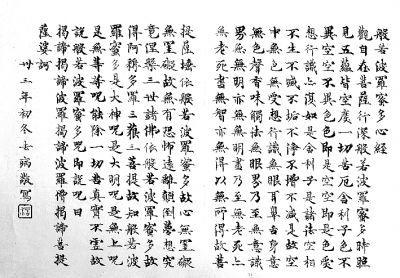 般若波羅蜜多心經
觀自在菩薩行深般若波羅蜜多時照
見五蘊皆空度一切苦厄舍利子色不
異空空不異色色即是空空即是色受
想行識亦復如是舍利子是諸法空相
不生不滅不垢不淨不增不減是故空
中無色無受想行識無眼耳鼻舌身意
無色聲香味觸法無眼界乃至無意識
界無無明亦無無明盡乃至無老死亦
無老死盡無智亦無得以無所得故菩
提薩埵依般若波羅蜜多故心無罣礙
無罣礙故無恐怖遠離顛倒夢想究
竟涅槃三世諸佛依般若波羅蜜多故
得阿耨多羅三藐三菩提故知般若波
羅蜜多是大神呪是大明呪是無上呪
是無等等呪能除一切苦真實不虛故
說般若波羅蜜多呪即說呪曰
揭諦揭諦波羅揭諦波羅僧揭諦菩提
薩婆訶
卅三年初冬去病敬寫